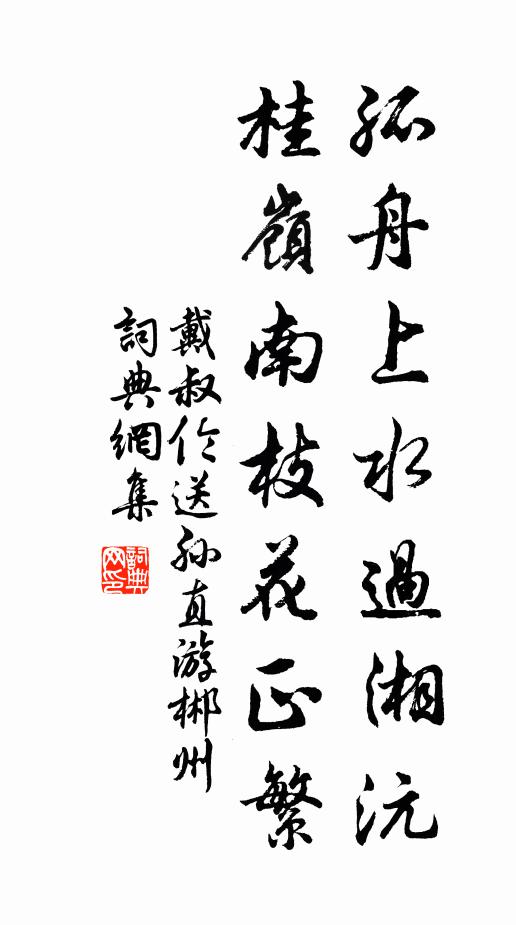 孤舟上水過湘沅
桂嶺南枝花正繁
戴叔伦送孙直游郴州
詞典網集
詞典
网印